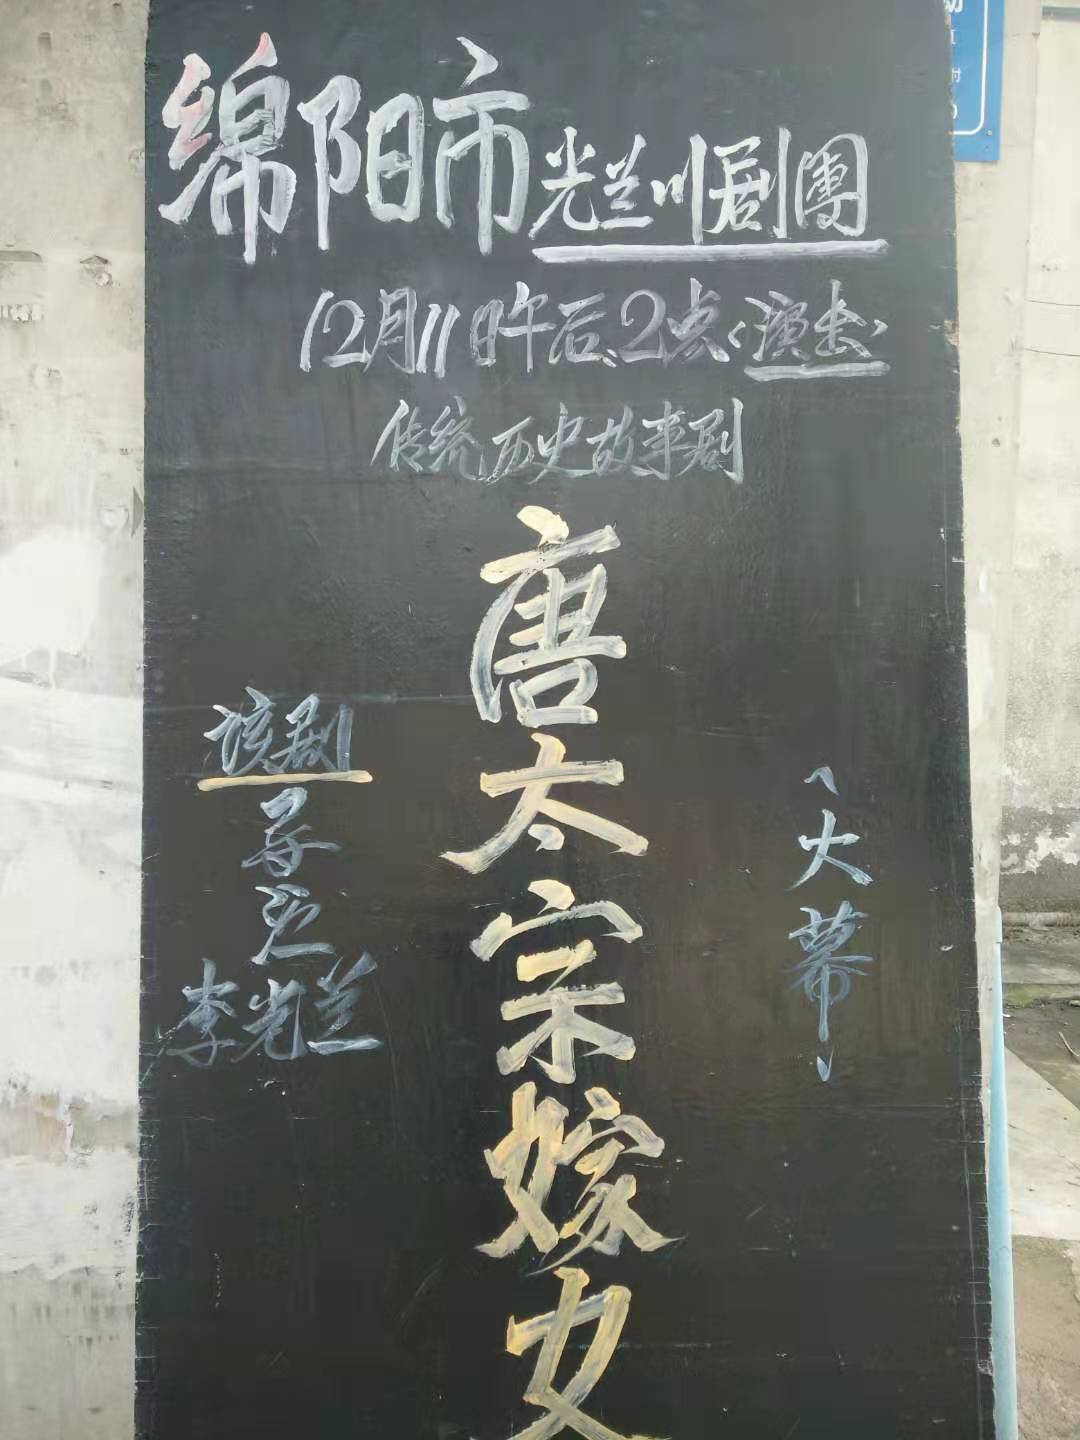 绵阳市光兰川剧團
12月11日午后2点〈演出〉
传统历史故事剧
唐太宗嫁女
〈大幕〉
该剧
导演
李光兰